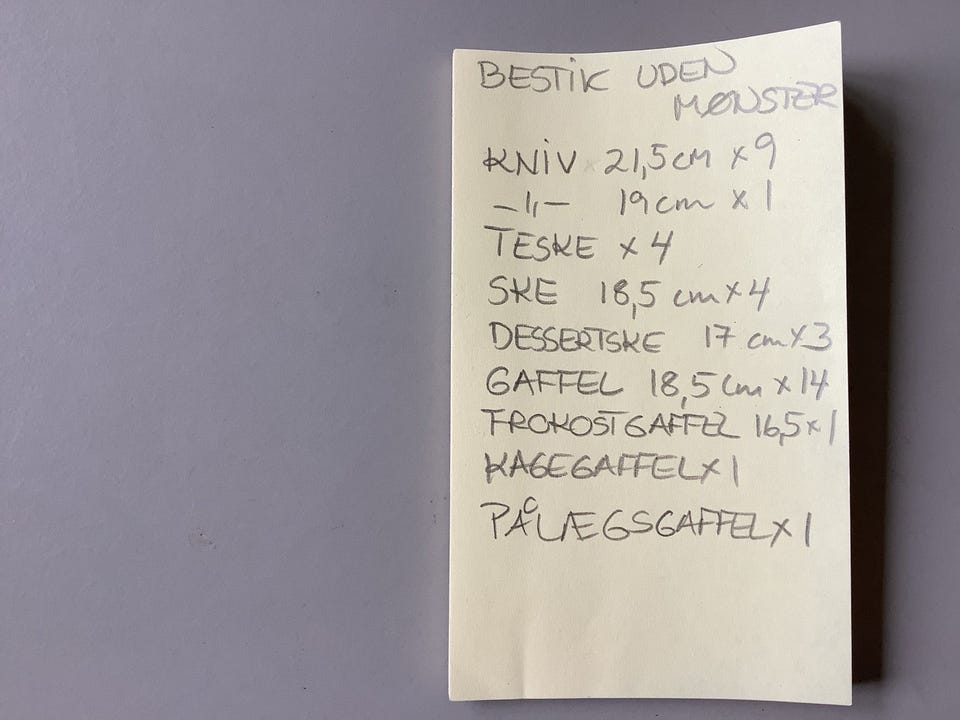 BESTIK UDEN
MØNSTER
KNIV 21,5cm x 9
-"- 19cm x 1
TESKE x 4
SKE 18,5 cm x 4
DESSERTSKE 17 cm x 3
GAFFEL 18,5 cm x 14
FROKOSTGAFFEL 16,5 x 1
KAGEGAFFEL x 1
PÅLÆGSGAFFEL x 1